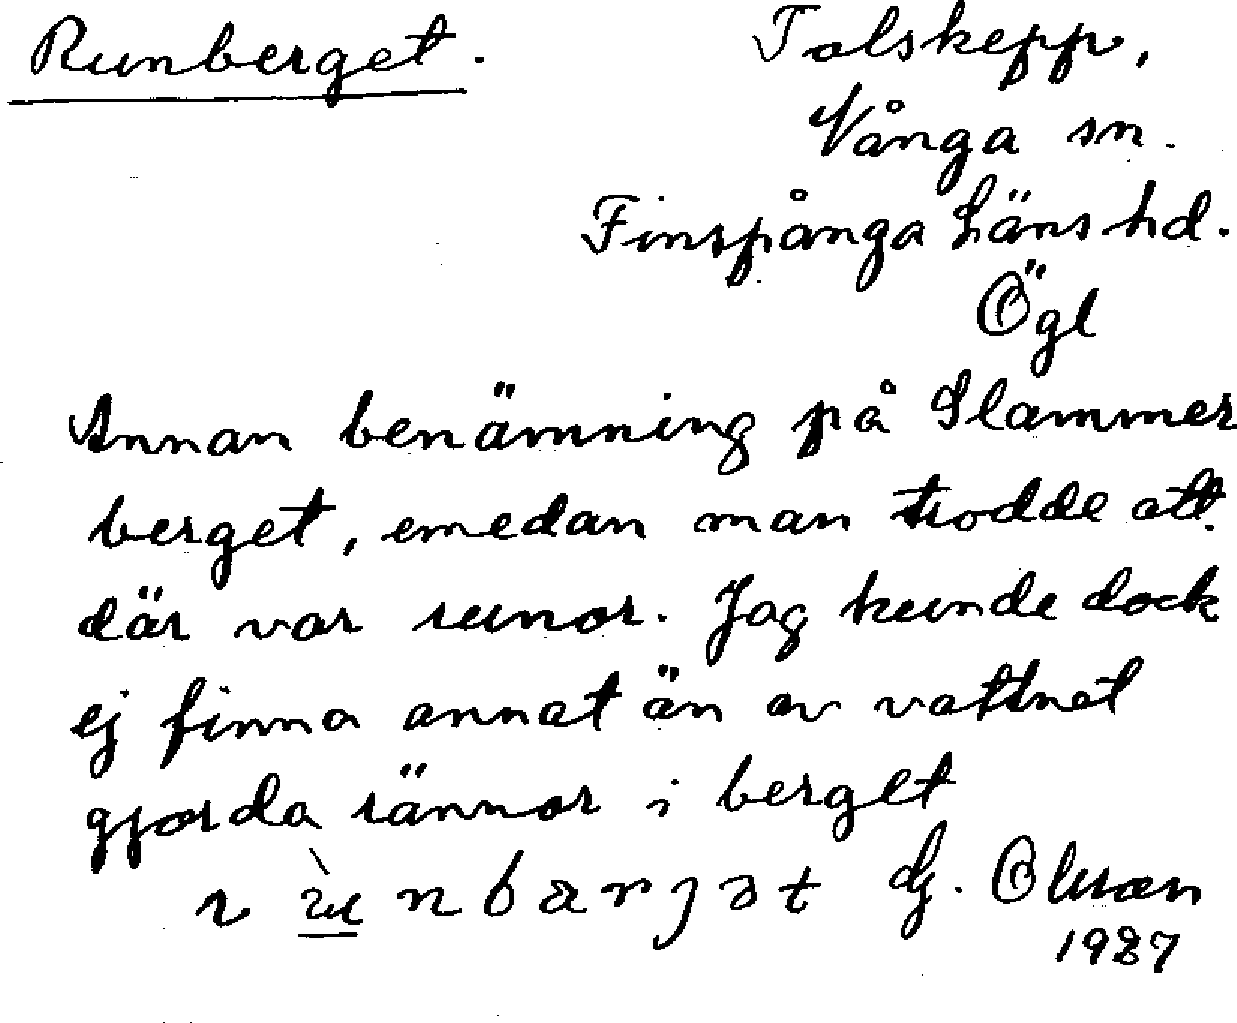 Runberget.
Tolskepp,
Vånga sn.
Finspånga Läns hd.
Ögl
Annan benämning på Slammer
berget, emedan man trodde att
där var runor. Jag kunde dock
ej finna annat än av vattnet
gjorda rännor i berget
G. Olsson
1927